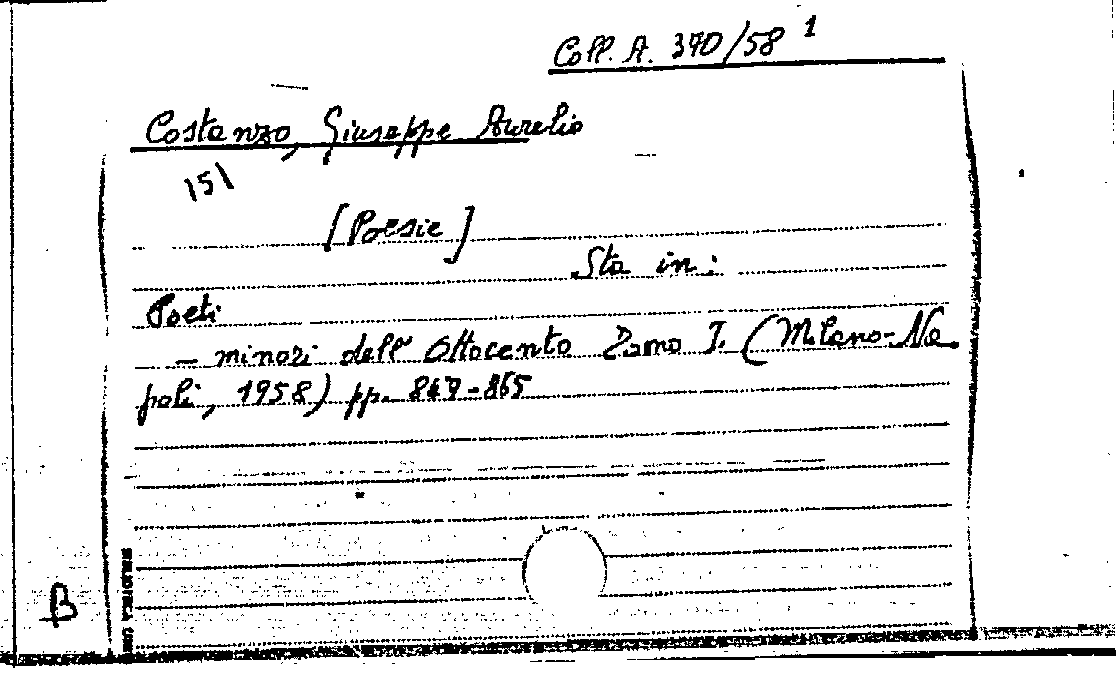 Coll. A. 370/58 1
Costanzo, Giuseppe Aurelio
151
[Poesie]
Sta in:
Poeti
- minori dell' Ottocento Tomo I. (Milano-Na
poli, 1958) pp. 847-865
B
BIBLIOTECA